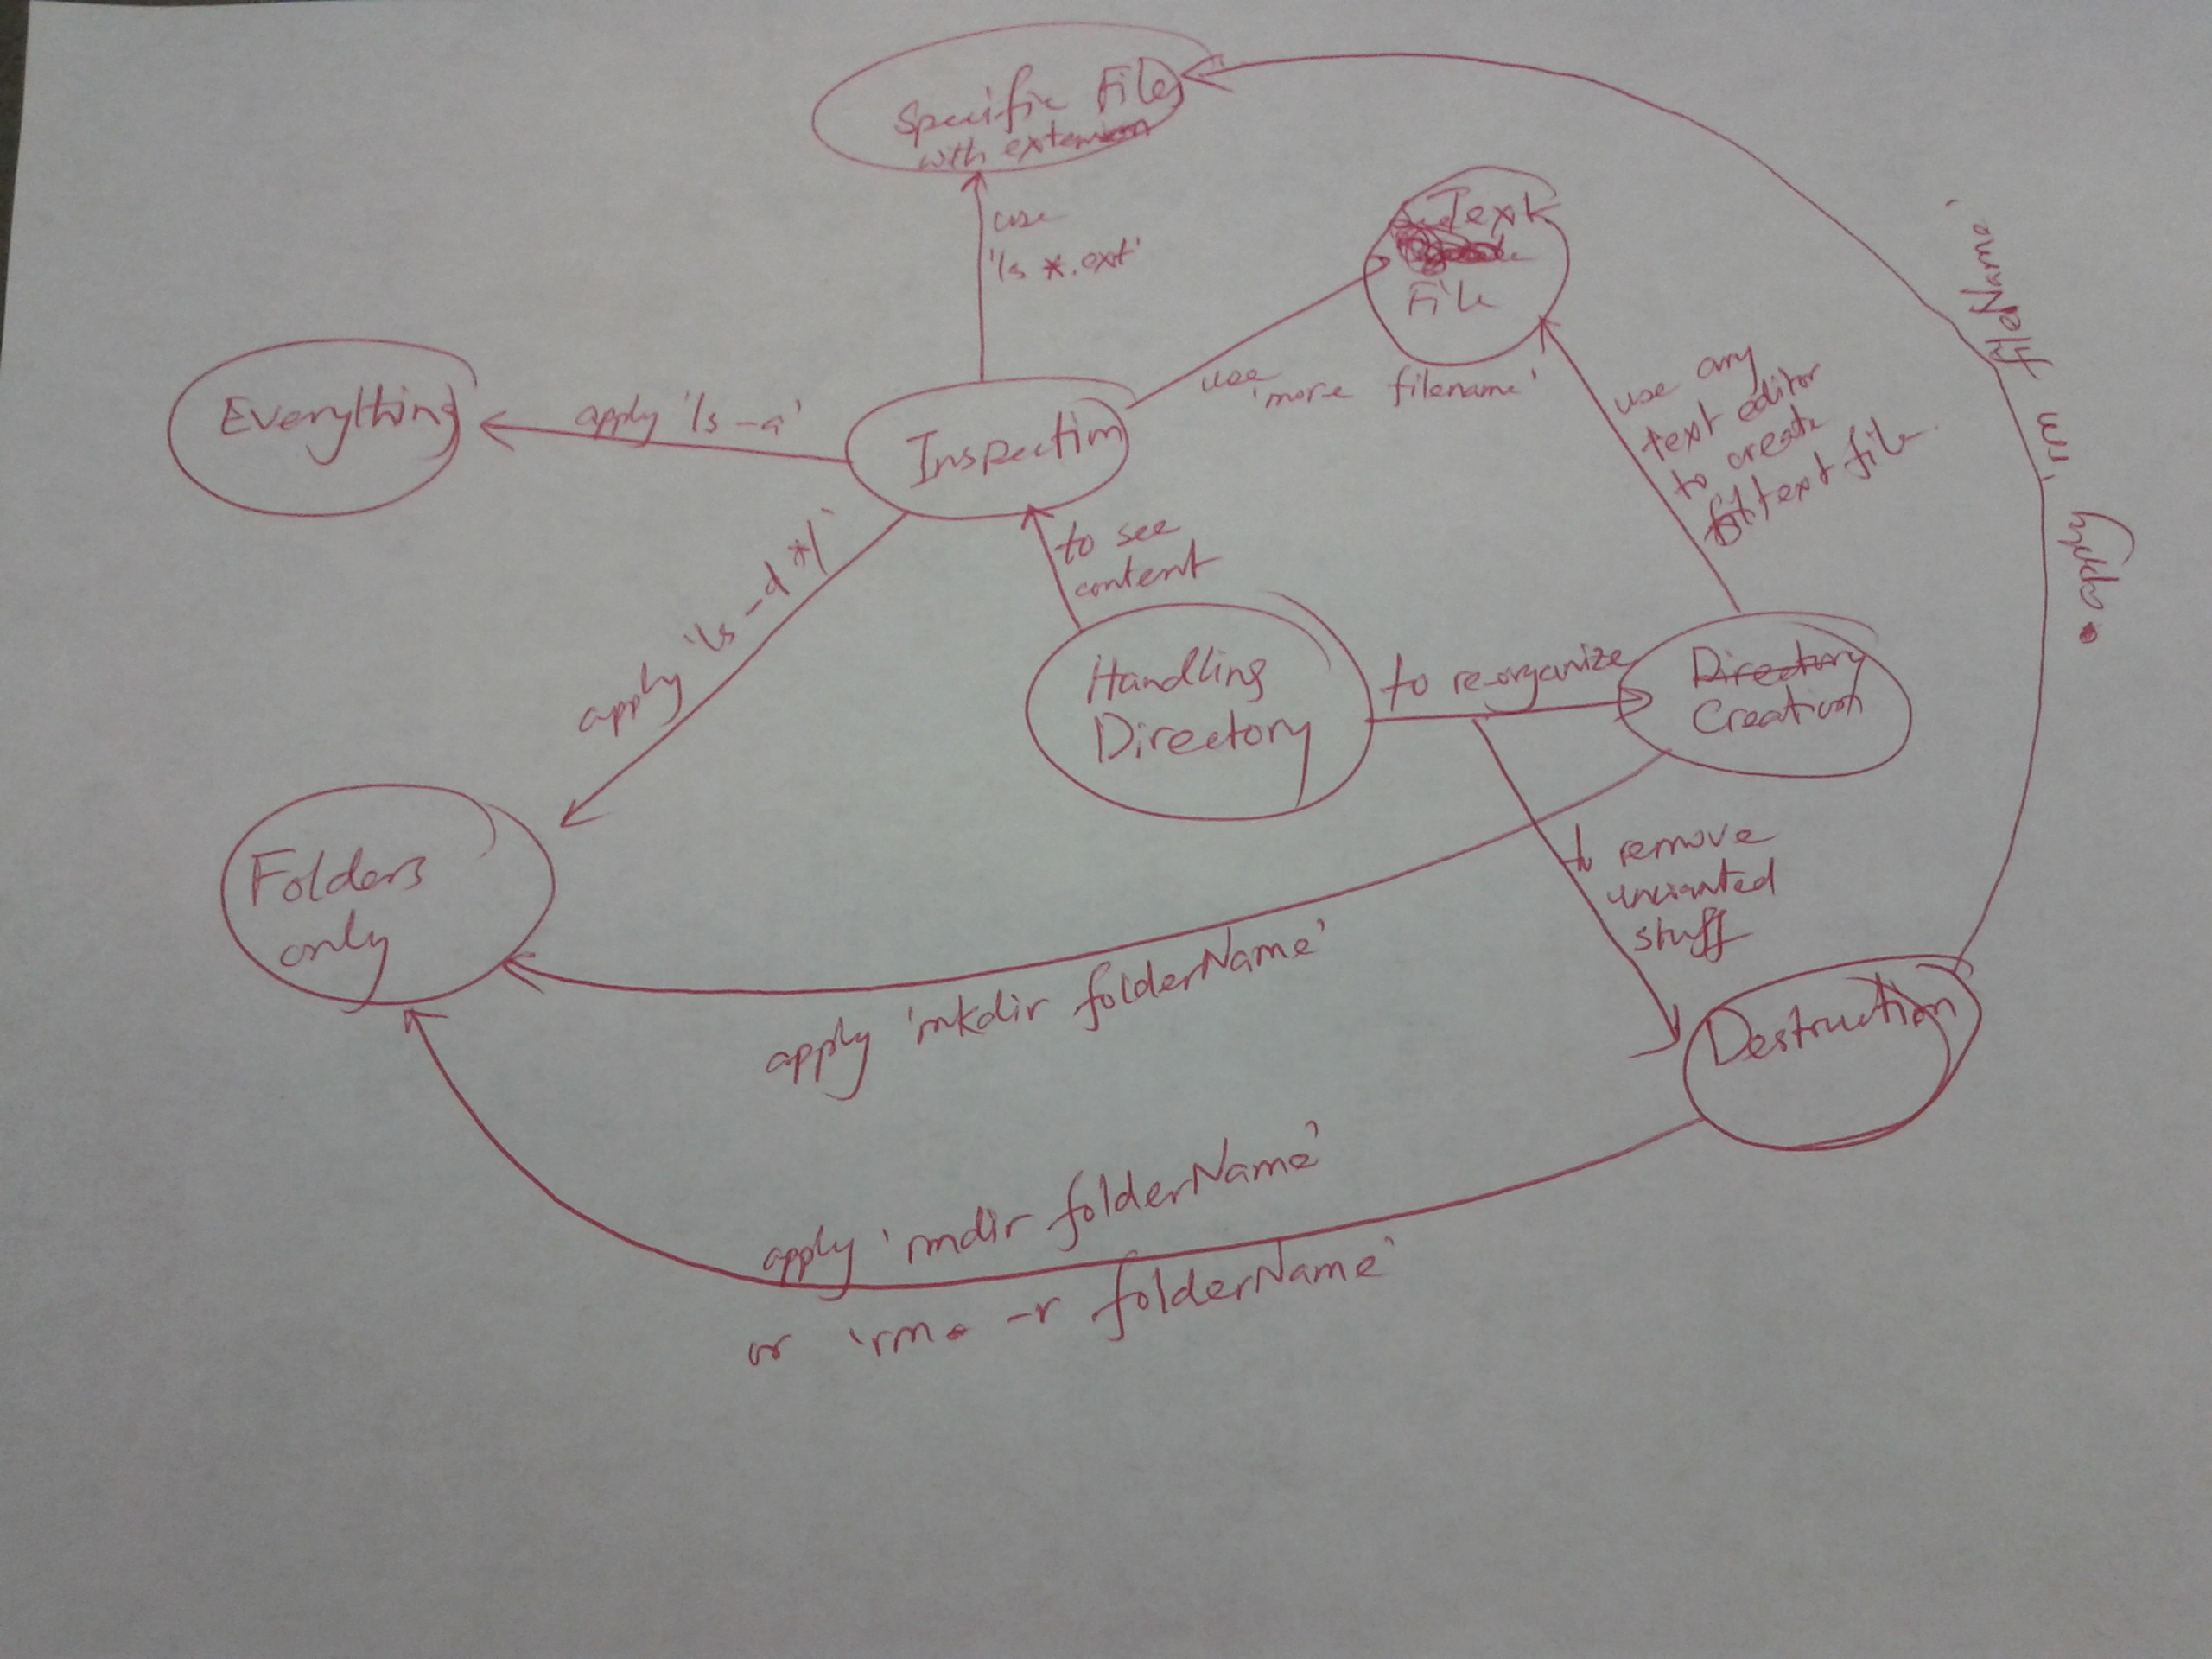 Specific Files
with extension
use
'ls *.ext'
Text
File
Everything
apply 'ls -a'
Inspection
use
'more filename'
use any
text editor
to create
text file
apply 'rm fileName'
apply 'ls -d */'
to see
content
Handling
Directory
to re-organize
Directory
Creation
Folders
only
to remove
unwanted
stuff
apply 'mkdir folderName'
Destruction
apply 'rmdir folderName'
or 'rm -r folderName'